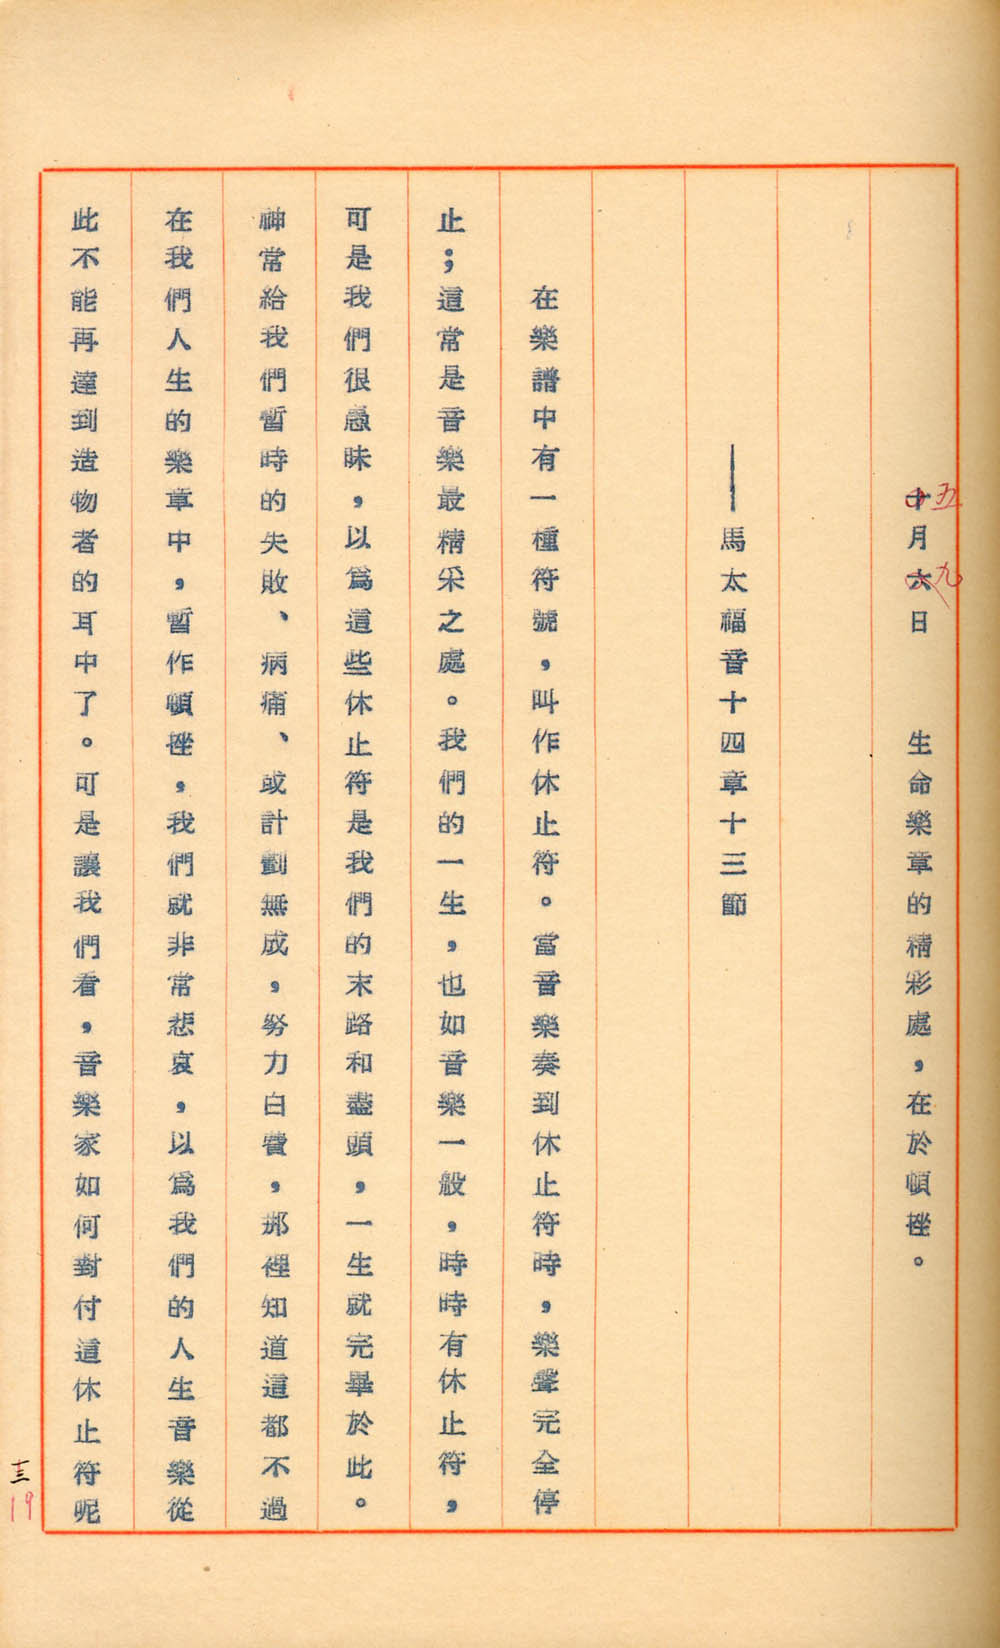 十月六日　生命樂章的精彩處，在於頓挫。
五
九
——馬太福音十四章十三節
在樂譜中有一種符號，叫作休止符。當音樂奏到休止符時，樂聲完全停
止；這常是音樂最精采之處。我們的一生，也如音樂一般，時時有休止符，
可是我們很愚昧，以為這些休止符是我們的末路和盡頭，一生就完畢於此。
神常給我們暫時的失敗、病痛、或計劃無成，努力白費，那裡知道這都不過
在我們人生的樂章中，暫作頓挫。我們就非常悲哀，以為我們的人生音樂從
此不能再達到造物者的耳中了。可是讓我們看，音樂家如何對付這休止符呢
19